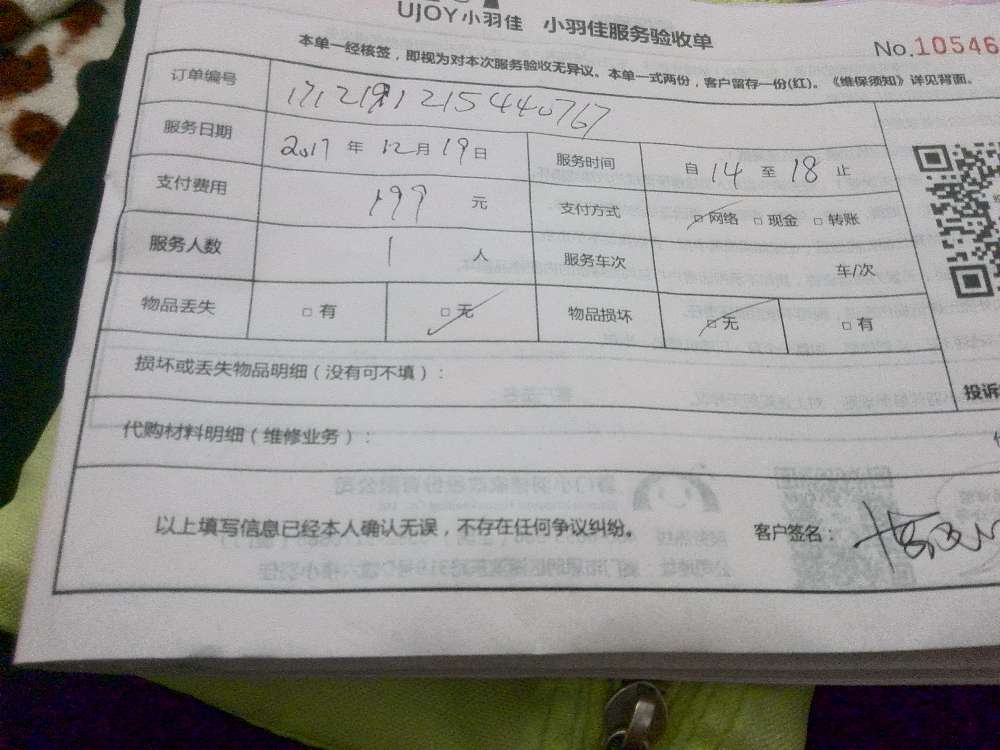 UJOY小羽佳 小羽佳服务验收单
No.10546
本单一经核签，即视为对本次服务验收无异议。本单一式两份，客户留存一份(红)。《维保须知》详见背面。
订单编号
服务日期 2017 年 12 月 19 日 服务时间 自 14 至 18 止
支付费用 199 元 支付方式 □ 网络 □ 现金 □ 转账
服务人数 1 人 服务车次 车/次
物品丢失 □ 有 □ 无 物品损坏 □ 无 □ 有
损坏或丢失物品明细（没有可不填）：
投诉
代购材料明细（维修业务）：
以上填写信息已经本人确认无误，不存在任何争议纠纷。 客户签名：